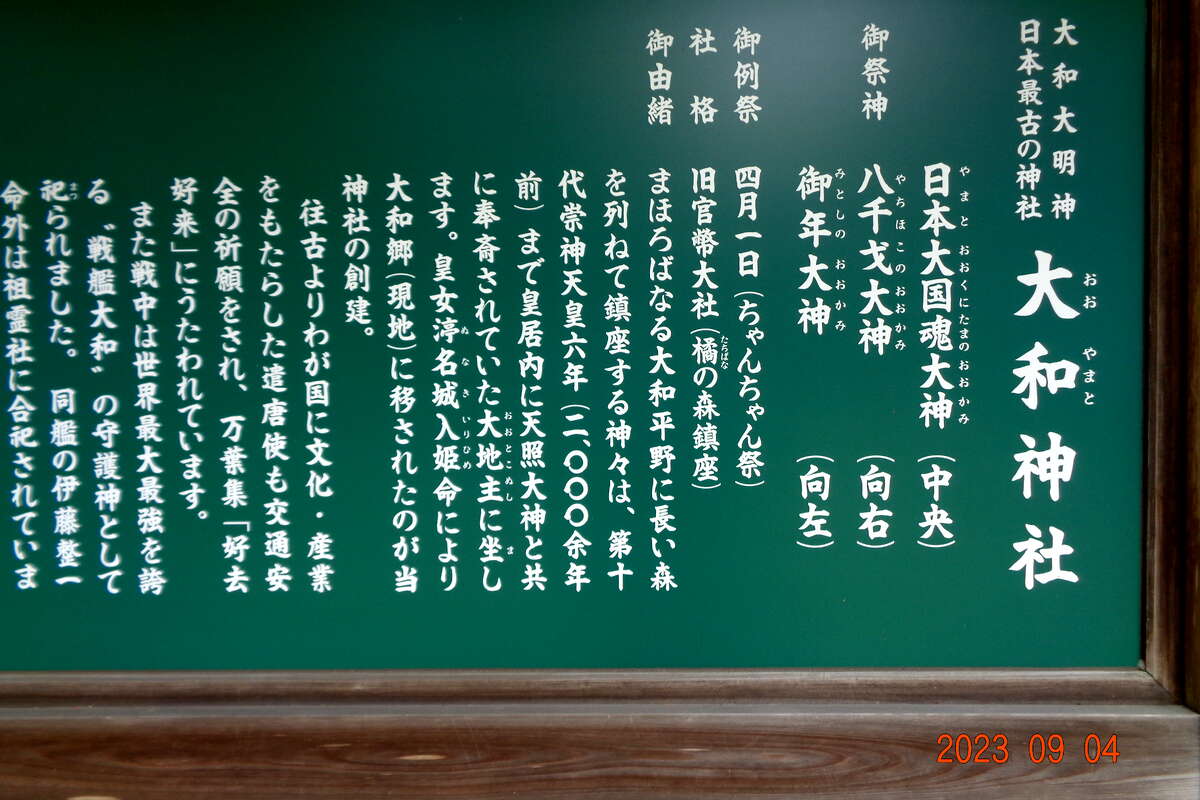 大和大明神
日本最古の神社
大和神社
おお やまと
御祭神
日本大国魂大神(中央)
やまと おおくにたまの おおかみ
八千戈大神(向右)
やちほこのおおかみ
御年大神(向左)
みとしの おおかみ
御例祭 四月一日(ちゃんちゃん祭)
社格 旧官幣大社(橘の森鎮座)
たちばな
御由緒 まほろばなる大和平野に長い森
を列ねて鎮座する神々は、第十
代崇神天皇六年(二、〇〇〇余年
前)まで皇居内に天照大神と共
に奉斎されていた大地主に坐し
おおとこぬし ま
ます。皇女渟名城入姫命により
ぬなき いりひめ
大和郷(現地)に移されたのが当
神社の創建。
往古よりわが国に文化・産業
をもたらした遣唐使も交通安
全の祈願をされ、万葉集「好去
好来」にうたわれています。
また戦中は世界最大最強を誇
る〝戦艦大和〟の守護神として
祀られました。同艦の伊藤整一
まつ
命外は祖霊社に合祀されていま
2023 09 04